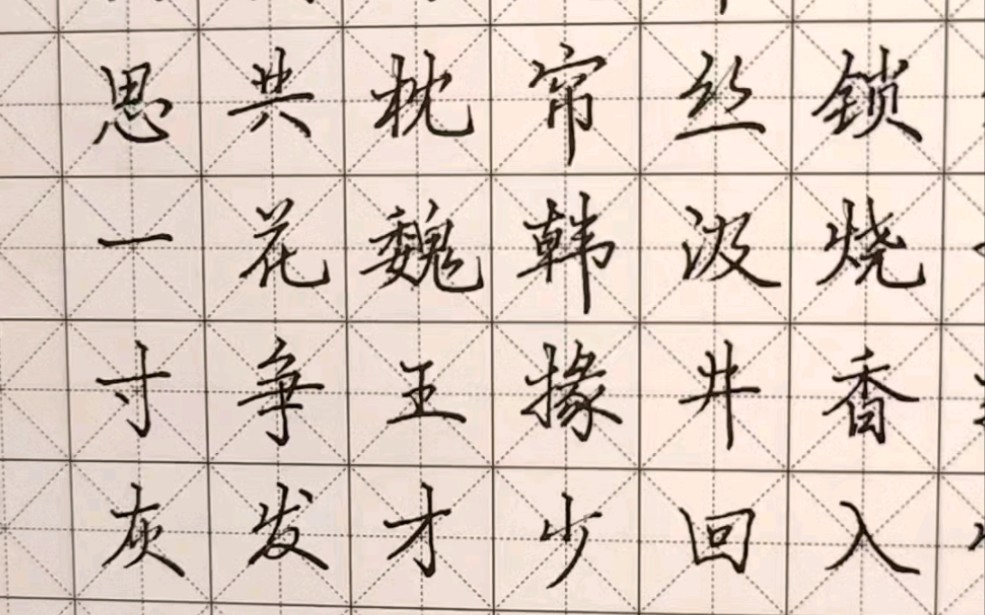 锁烧香入
丝汲井回
帘韩掾少
枕魏王才
共花争发
思一寸灰